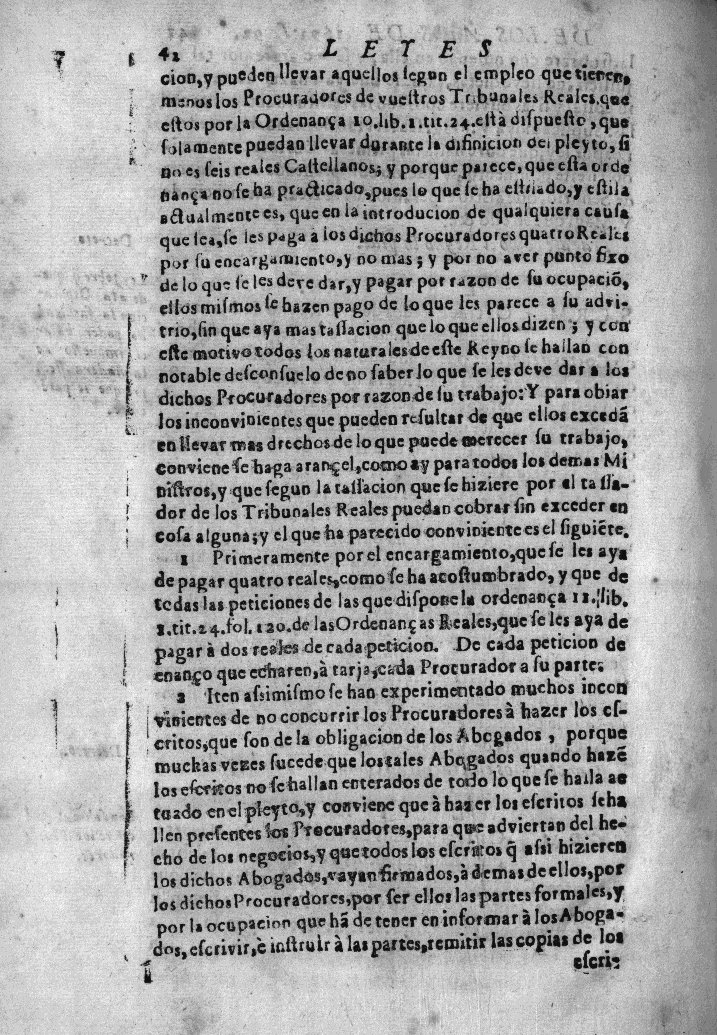 42 LEYES
cion, y pueden llevar aquellos segun el empleo que tienen,
menos los Procuradores de vuestros Tribunales Reales, que
estos por la Ordenança 10. lib. 1. tit. 24. està dispuesto, que
solamente puedan llevar durante la difinicion del pleyto, si
no es seis reales Castellanos; y porque parece, que esta orde
nança no se ha practicado, pues lo que se ha estilado, y estila
actualmente es, que en la introducion de qualquiera causa
que sea, se les paga à los dichos Procuradores quatro Reales
por su encargamiento, y no mas; y por no aver punto fixo
de lo que se les deve dar, y pagar por razon de su ocupaciõ,
ellos mismos se hazen pago de lo que les parece a su advi-
trio, sin que aya mas tassacion que lo que ellos dizen; y con
este motivo todos los naturales de este Reyno se hallan con
notable desconsuelo de no saber lo que se les deve dar a los
dichos Procuradores por razon de su trabajo: Y para obiar
los inconvinientes que pueden resultar de que ellos excedã
en llevar mas drechos de lo que puede merecer su trabajo,
conviene se haga arançel, como ay para todos los demas Mi
nistros, y que segun la tassacion que se hiziere por el tassa-
dor de los Tribunales Reales puedan cobrar sin exceder en
cosa alguna; y el que ha parecido conviniente es el siguiẽte.
1 Primeramente por el encargamiento, que se les aya
de pagar quatro reales, como se ha acostumbrado, y que de
todas las peticiones de las que dispone la ordenança 11. lib.
1. tit. 24. fol. 120. de las Ordenanças Reales, que se les aya de
pagar à dos reales de cada peticion. De cada peticion de
enanço que echaren, à tarja, cada Procurador a su parte.
2 Iten assimismo se han experimentado muchos incon
vinientes de no concurrir los Procuradores à hazer los es-
critos, que son de la obligacion de los Abogados, porque
muchas vezes sucede que los tales Abogados quando hazẽ
los escritos no se hallan enterados de todo lo que se halla ac
tuado en el pleyto, y conviene que à hazer los escritos se ha
llen presentes los Procuradores, para que adviertan del he-
cho de los negocios, y que todos los escritos q̃ assi hizieren
los dichos Abogados, vayan firmados, à demas de ellos, por
los dichos Procuradores, por ser ellos las partes formales, y
por la ocupacion que hã de tener en informar à los Aboga-
dos, escrivir, è instruir à las partes, remitir las copias de los
escri-